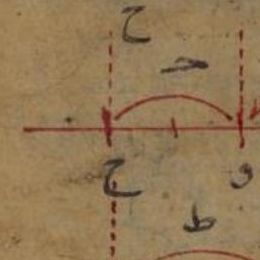 ح
ح
و
ط